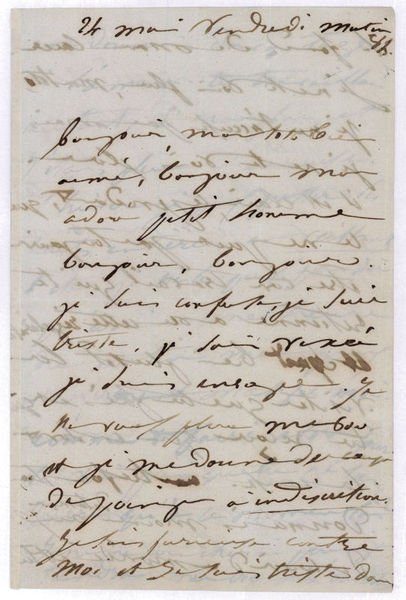 24 mai vendredi matin
Bonjour, mon toto bien
aimé, bonjour mon
adoré petit homme
bonjour, bonjour.
je suis confuse, je suis
triste, je suis vexée
je suis enragée. Je
ne veux plus me
et je me donne des coups
de poings à indiscrétion.
Je suis furieuse contre
moi et je suis triste